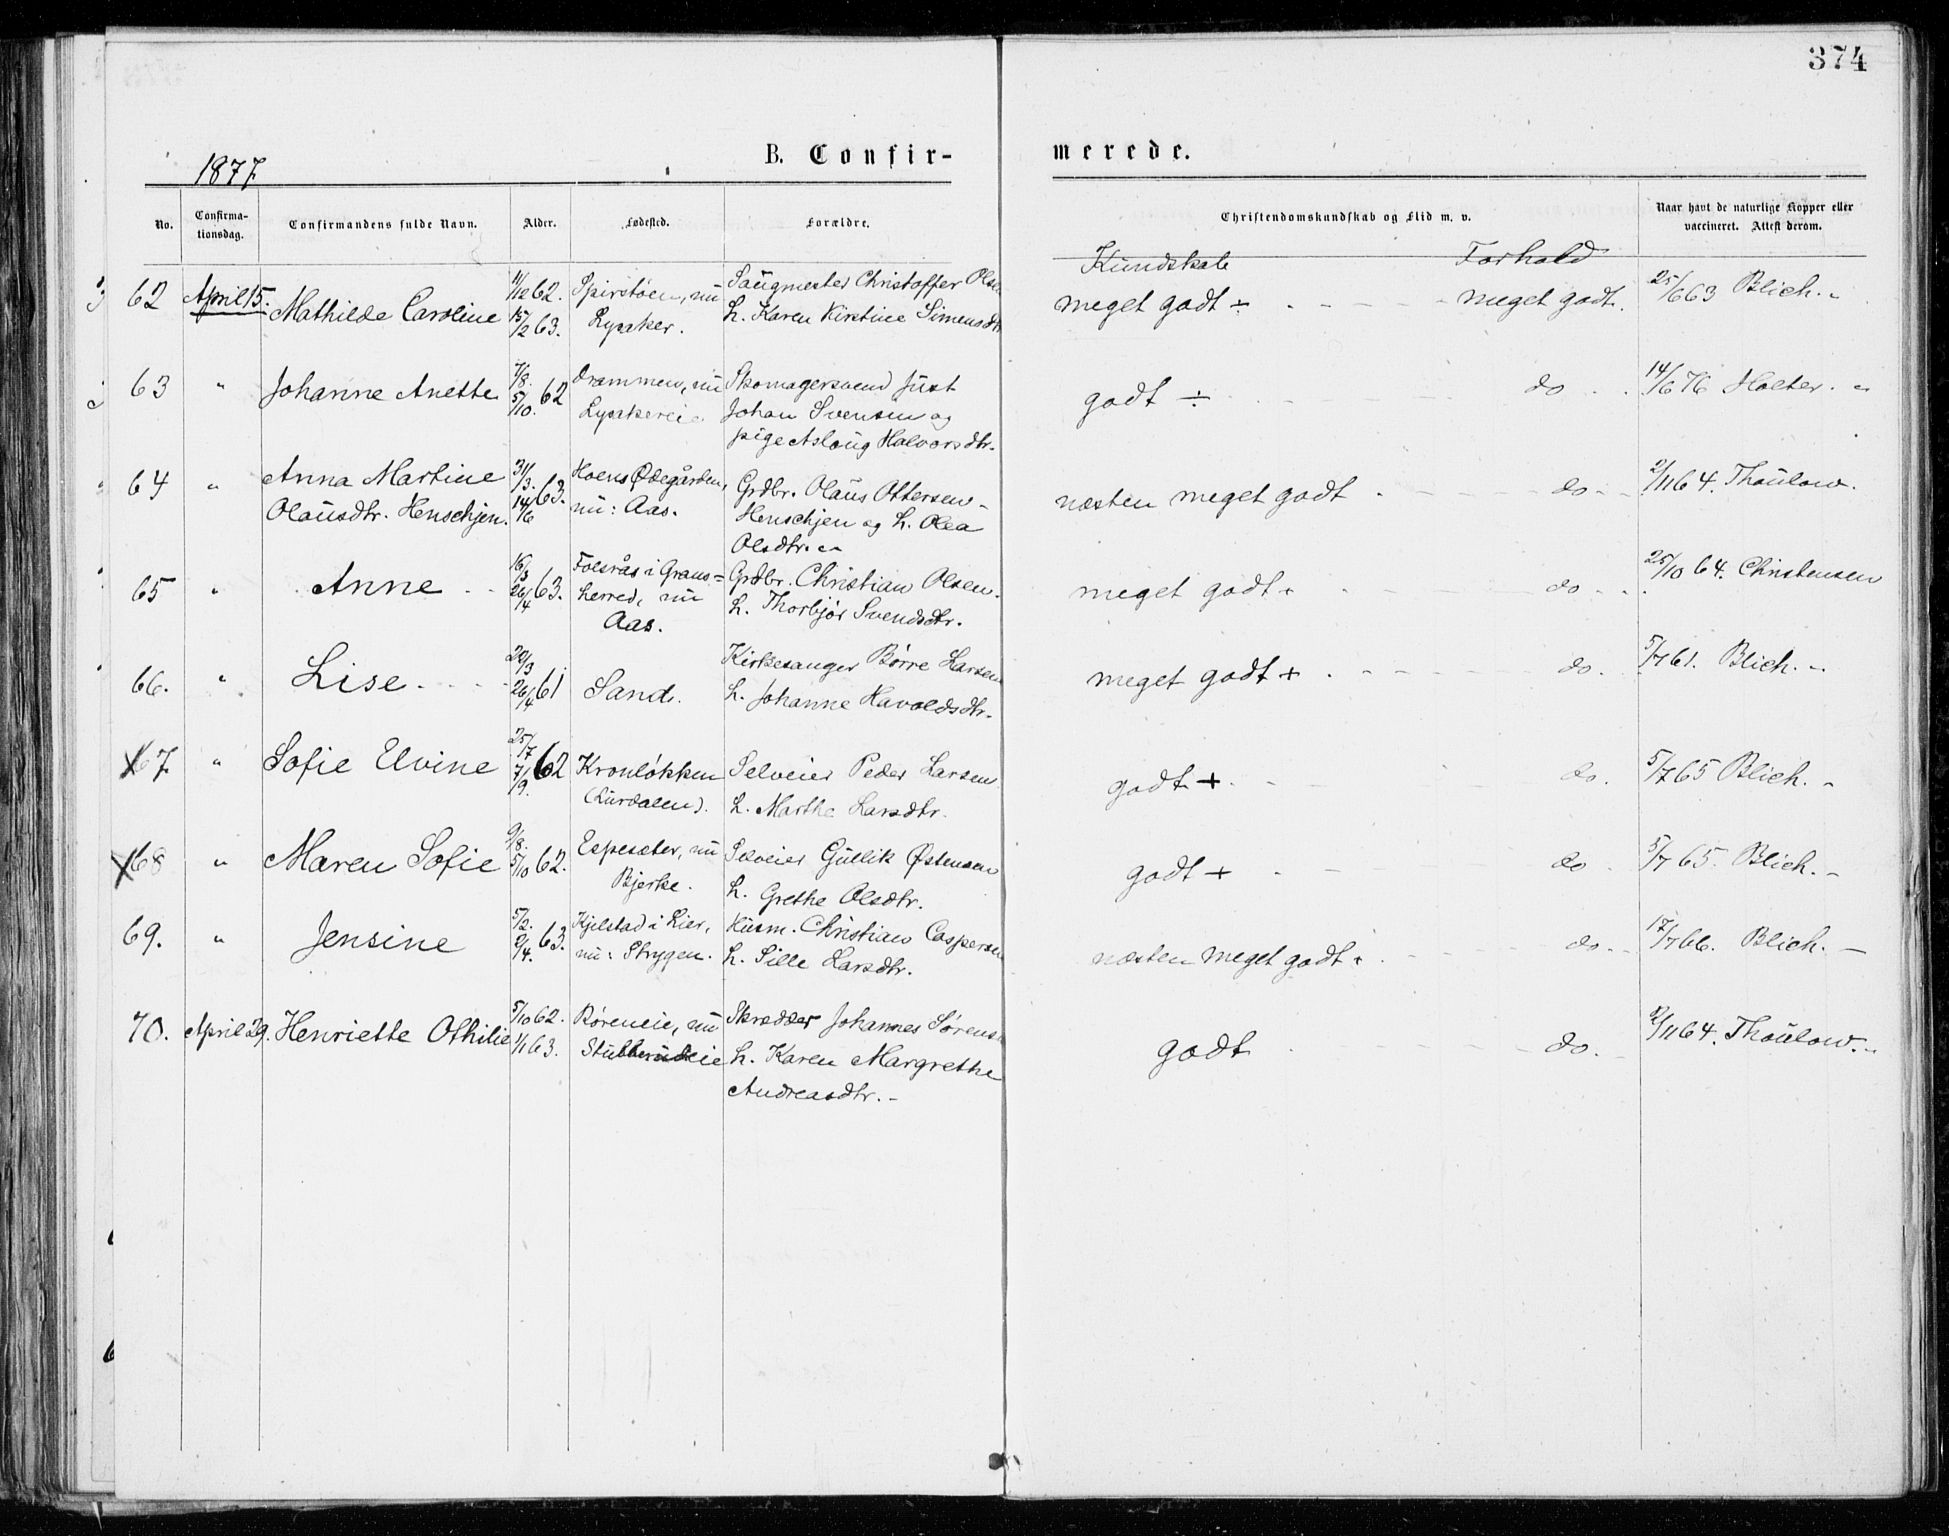 374
1877.
B. Confir-
merede.
No.
Confirma-
tionsdag.
Confirmandens fulde Navn.
Alder.
Fødested.
Forældre.
Christendomskundskab og Flid m. v.
Naar havt de naturlige Kopper eller
vaccineret. Attest derom.
Kundskab
Forhold
62 April 15. Mathilde Caroline
11/12 62.
15/2 63.
Spirstøen, nu
Lysaker.
Saugmester Christoffer Olsen
h. Karen Kirstine Simensdtr
meget godt ÷ - - - - meget godt.
25/6 63 Blich. "
63 " Johanne Anette
7/8.
5/10. 62
Drammen, nu
Lysakereie
Skomagersvend Just
Johan Svensen og
pige Aslaug Halvorsdtr.
godt ÷ - - - - do
14/6 76 Holter. "
64 " Anna Martine
Olausdtr. Henschjen.
31/3.
14/6 63.
Hoens Ødegården,
nu: Aas.
Grdbr. Olaus Ottersen
Henschjen og h. Olea
Olsdtr. "
næsten meget godt - - - - do -
2/11 64. Thaulow.
65 " Anne
16/3
26/4 63.
i Grans=
herred, nu
Aas.
Grdbr. Christian Olsen.
h. Thorbjør Svendsdtr.
meget godt + - - - - do
25/10 64. Christensen
66. " Lise
20/3
26/4 61
Sand.
Kirkesanger Børre Larsen
h. Johanne Havoldsdtr.
meget godt + - - - - do.
5/7 61. Blich. "
67. " Sofie Elvine
25/7
7/9. 62
Kronløkken
(Lurdalen).
Selveier Peder Larsen
h. Marthe Larsdtr.
godt + - - do.
5/7 65 Blich. "
68 " Maren Sofie
9/8.
5/10 62.
Espesæter, nu
Bjerke.
Selveier Gullik Østensen
h. Grethe Olsdtr.
godt + - - do
5/7 65. Blich. -
69. " Jensine
5/2.
2/4. 63.
Kjelstad i Lier,
nu: Strygen.
Husm. Christian Caspersen
h. Sille Larsdtr.
næsten meget godt + - - do -
17/7 66. Blich. -
70. April 29. Henriette Othilie
5/10 62.
1/1 63.
Børeneie, nu
Stubberudeie
Skrædder Johannes Sørensen
h. Karen Margrethe
Andreasdtr. -
godt - - - do.
2/11 64. Thaulow. "